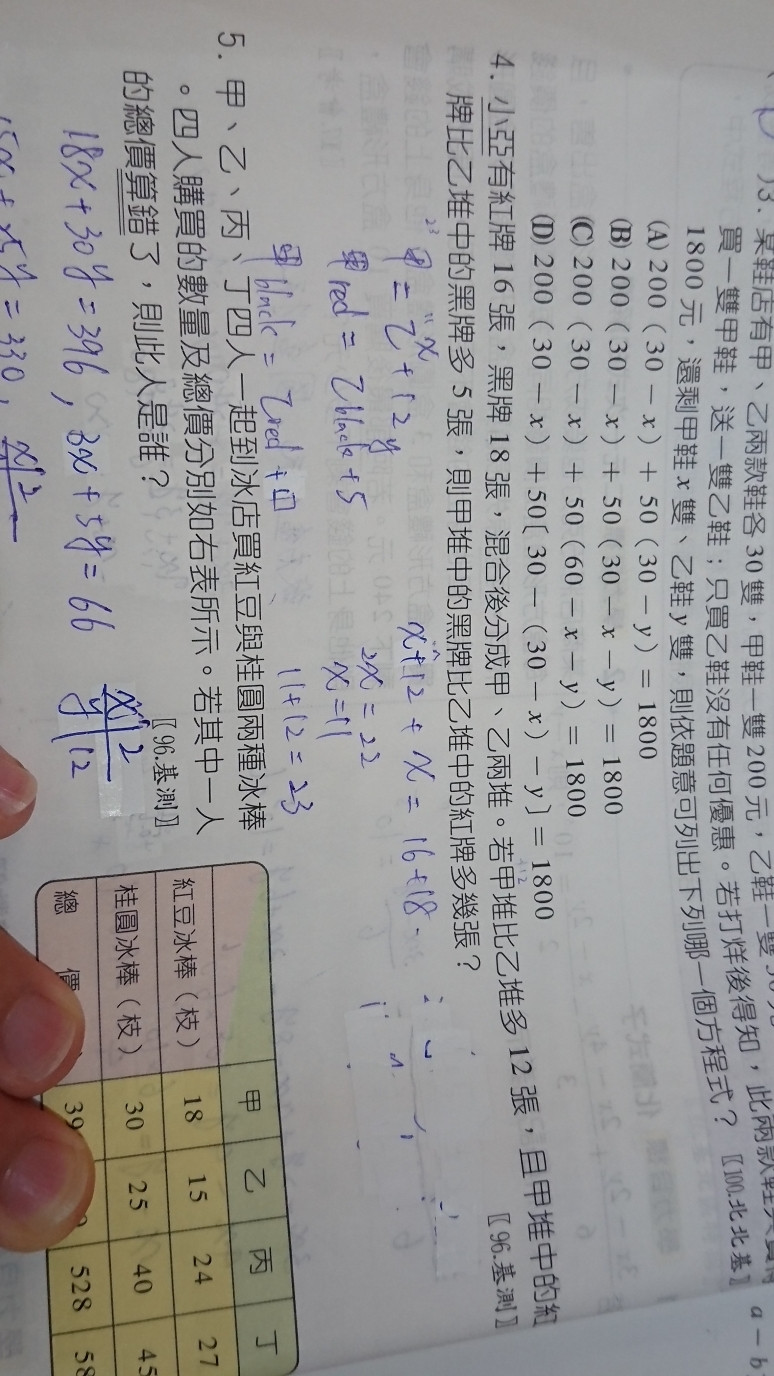 )3. 某鞋店有甲、乙兩款鞋各 30 雙，甲鞋一雙 200 元，乙鞋一雙
買一雙甲鞋，送一雙乙鞋；只買乙鞋沒有任何優惠。若打烊後得知，此兩款鞋
1800 元，還剩甲鞋 x 雙、乙鞋 y 雙，則依題意可列出下列哪一個方程式？〖100.北北基〗
(A) 200（30 － x）＋ 50（30 － y）＝ 1800
(B) 200（30 － x）＋ 50（30 － x － y）＝ 1800
(C) 200（30 － x）＋ 50（60 － x － y）＝ 1800
(D) 200（30 － x）＋ 50〔30 －（30 － x）－ y〕＝ 1800
a － b
4. 小亞有紅牌 16 張，黑牌 18 張，混合後分成甲、乙兩堆。若甲堆比乙堆多 12 張，且甲堆中的紅
牌比乙堆中的黑牌多 5 張，則甲堆中的黑牌比乙堆中的紅牌多幾張？
〖96.基測〗
+12
23
甲 = 乙 + 12
11 x
x+12 + x = 16+18
甲red = 乙black + 5
2x = 22
x = 11
甲black = 乙red + □
11+12 = 23
5. 甲、乙、丙、丁四人一起到冰店買紅豆與桂圓兩種冰棒
。四人購買的數量及總價分別如右表所示。若其中一人
的總價算錯了，則此人是誰？
〖96.基測〗
18x + 30y = 396 , 3x + 5y = 66
x 2
y 12
15x + 25y = 330 ,
x 2
甲 乙 丙 丁
紅豆冰棒（枝） 18 15 24 27
桂圓冰棒（枝） 30 25 40 45
總 價 39 528 58